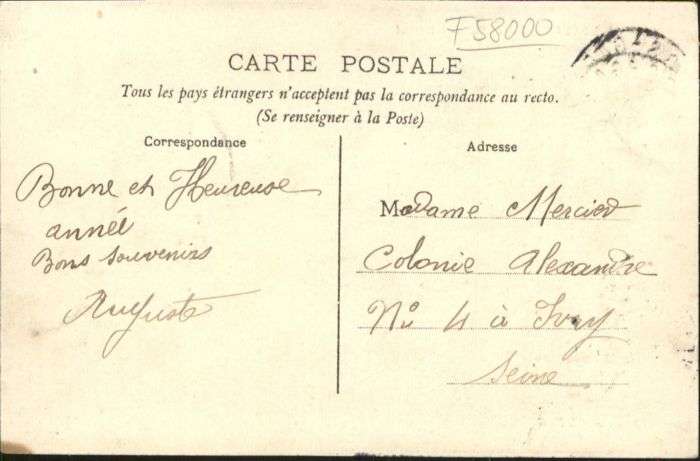 F58000
CARTE POSTALE
Tous les pays étrangers n'acceptent pas la correspondance au recto.
(Se renseigner à la Poste)
Correspondance
Bonne et Heureuse
année
Bons souvenirs
Auguste
Adresse
Madame Mercier
Colonie Alexandre
No 4 à Ivry
Seine